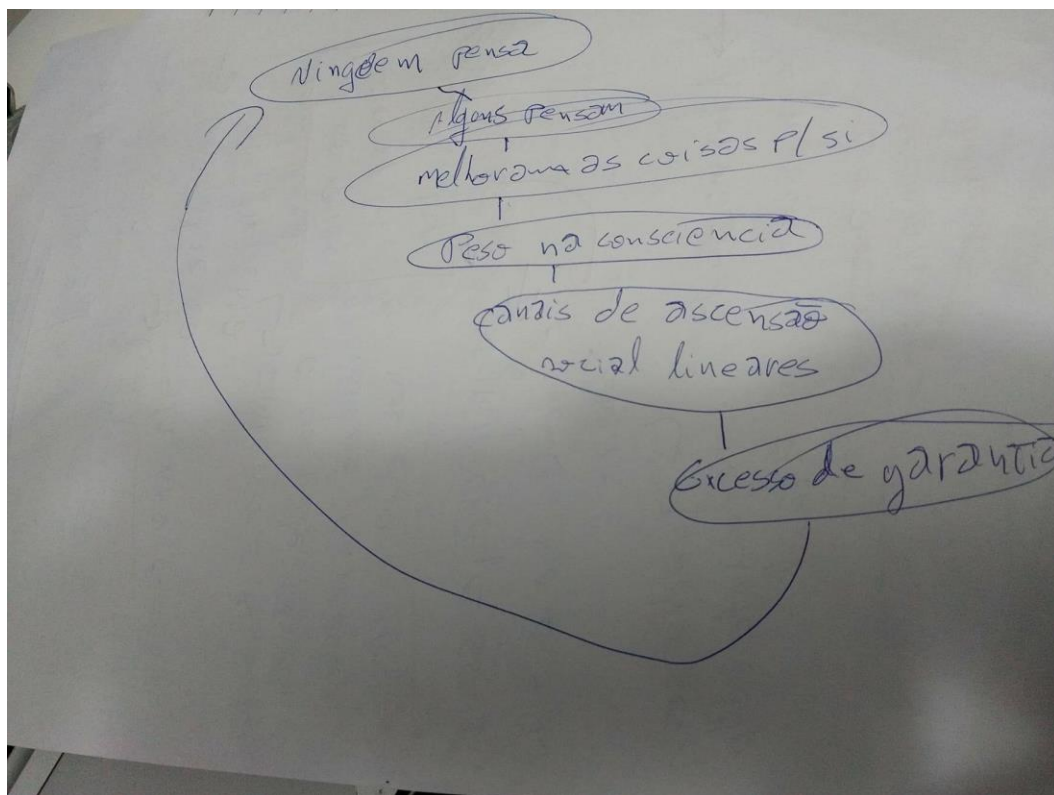 Ningem pensa
Algons pensam
melhoram as coisas p/ si
Peso na consciencia
canais de ascensão
social lineares
Excesso de garantia